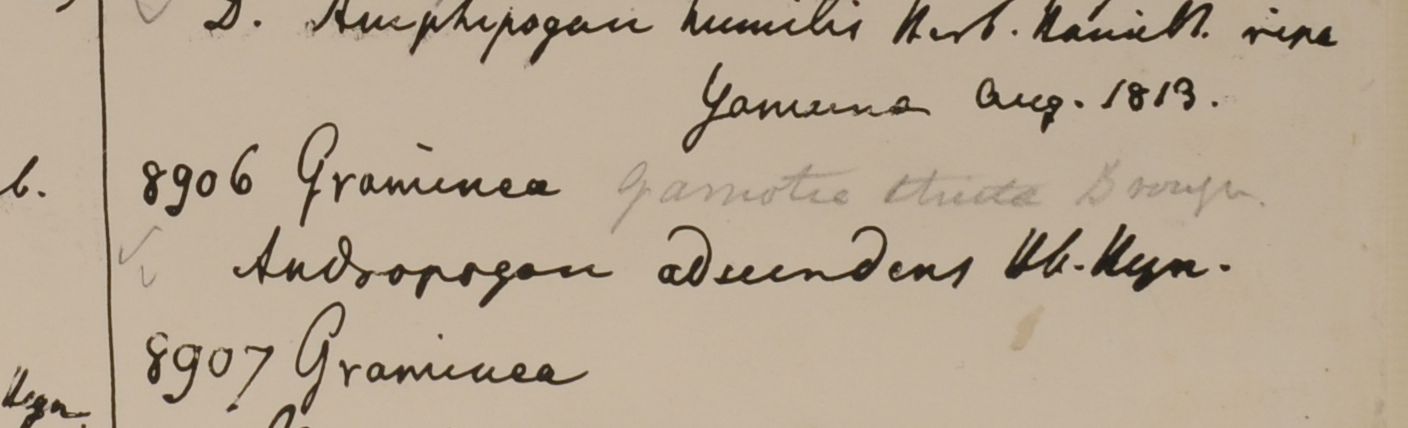 D. Amphipogon humilis Herb. Hamilt. ripa
Yamuna Aug. 1813.
b. 8906 Graminea Garnotia stricta Brongn.
Andropogon adscendens Hb. Heyn.
8907 Graminea
Heyn.